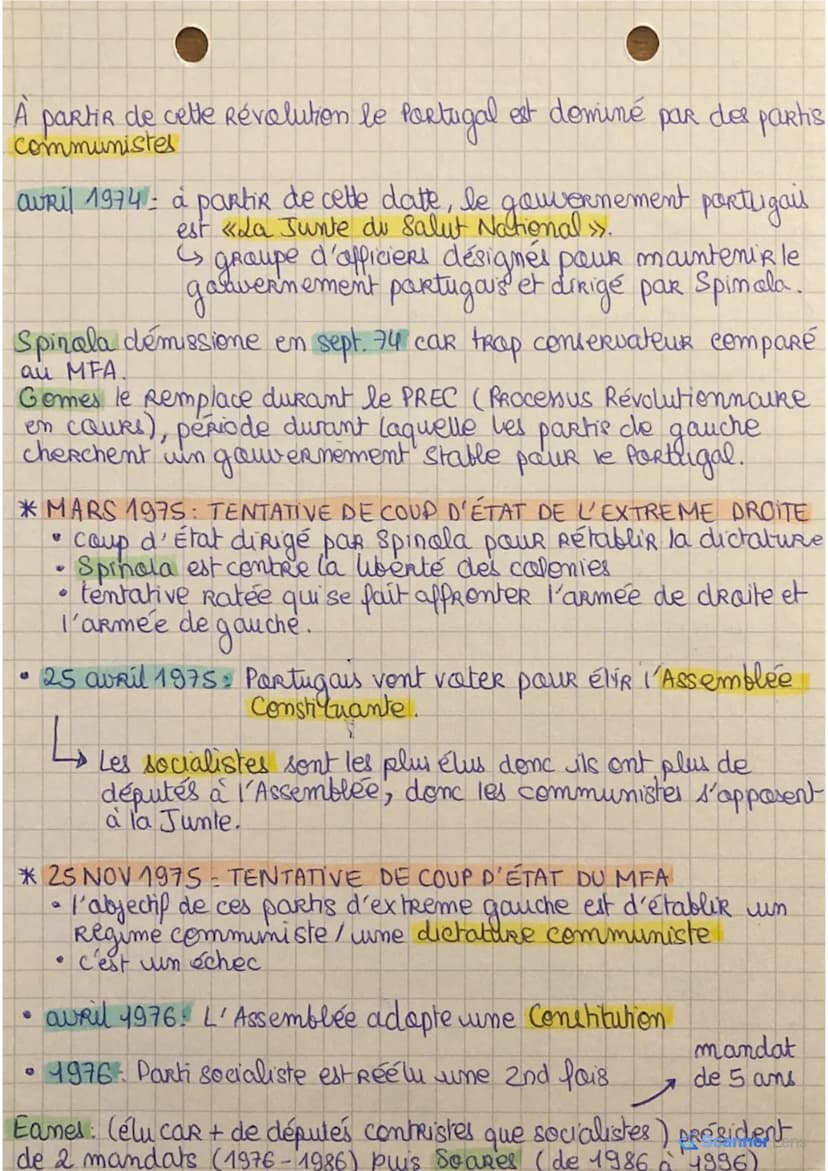 À partir de cette Révolution le Portugal est dominé par des partis
communistes
avril 1974: à partir de cette date, le gouvernement portugais
est «La Junte du Salut National».
↳ groupe d'officiers désignés pour maintenir le
gouvernement portugais et dirigé par Spinola.
Spinola démissione en sept. 74 car trop conservateur comparé
au MFA.
Gomes le remplace durant le PREC (Processus Révolutionnaire
en cours), période durant laquelle les partis de gauche
cherchent un gouvernement stable pour le Portugal.
* MARS 1975: TENTATIVE DE COUP D'ÉTAT DE L'EXTREME DROITE
• coup d'État dirigé par Spinola pour rétablir la dictature
• Spinola est contre la liberté des colonies
• tentative ratée qui se fait affronter l'armée de droite et
l'armée de gauche.
• 25 avril 1975: Portugais vont voter pour élir l'Assemblée
Constituante.
↳ Les socialistes sont les plus élus donc ils ont plus de
députés à l'Assemblée, donc les communistes s'opposent
à la Junte.
* 25 NOV 1975 - TENTATIVE DE COUP D'ÉTAT DU MFA
• l'objectif de ces partis d'extreme gauche est d'établir un
régime communiste / une dictature communiste
• c'est un échec
• avril 1976: L'Assemblée adopte une Constitution
• 1976: Parti socialiste est réélu une 2nd fois → mandat
de 5 ans
Eanes: (élu car + de députés centristes que socialistes) président
de 2 mandats (1976-1986) puis Soares (de 1986 à 1996)
Scanner Lens